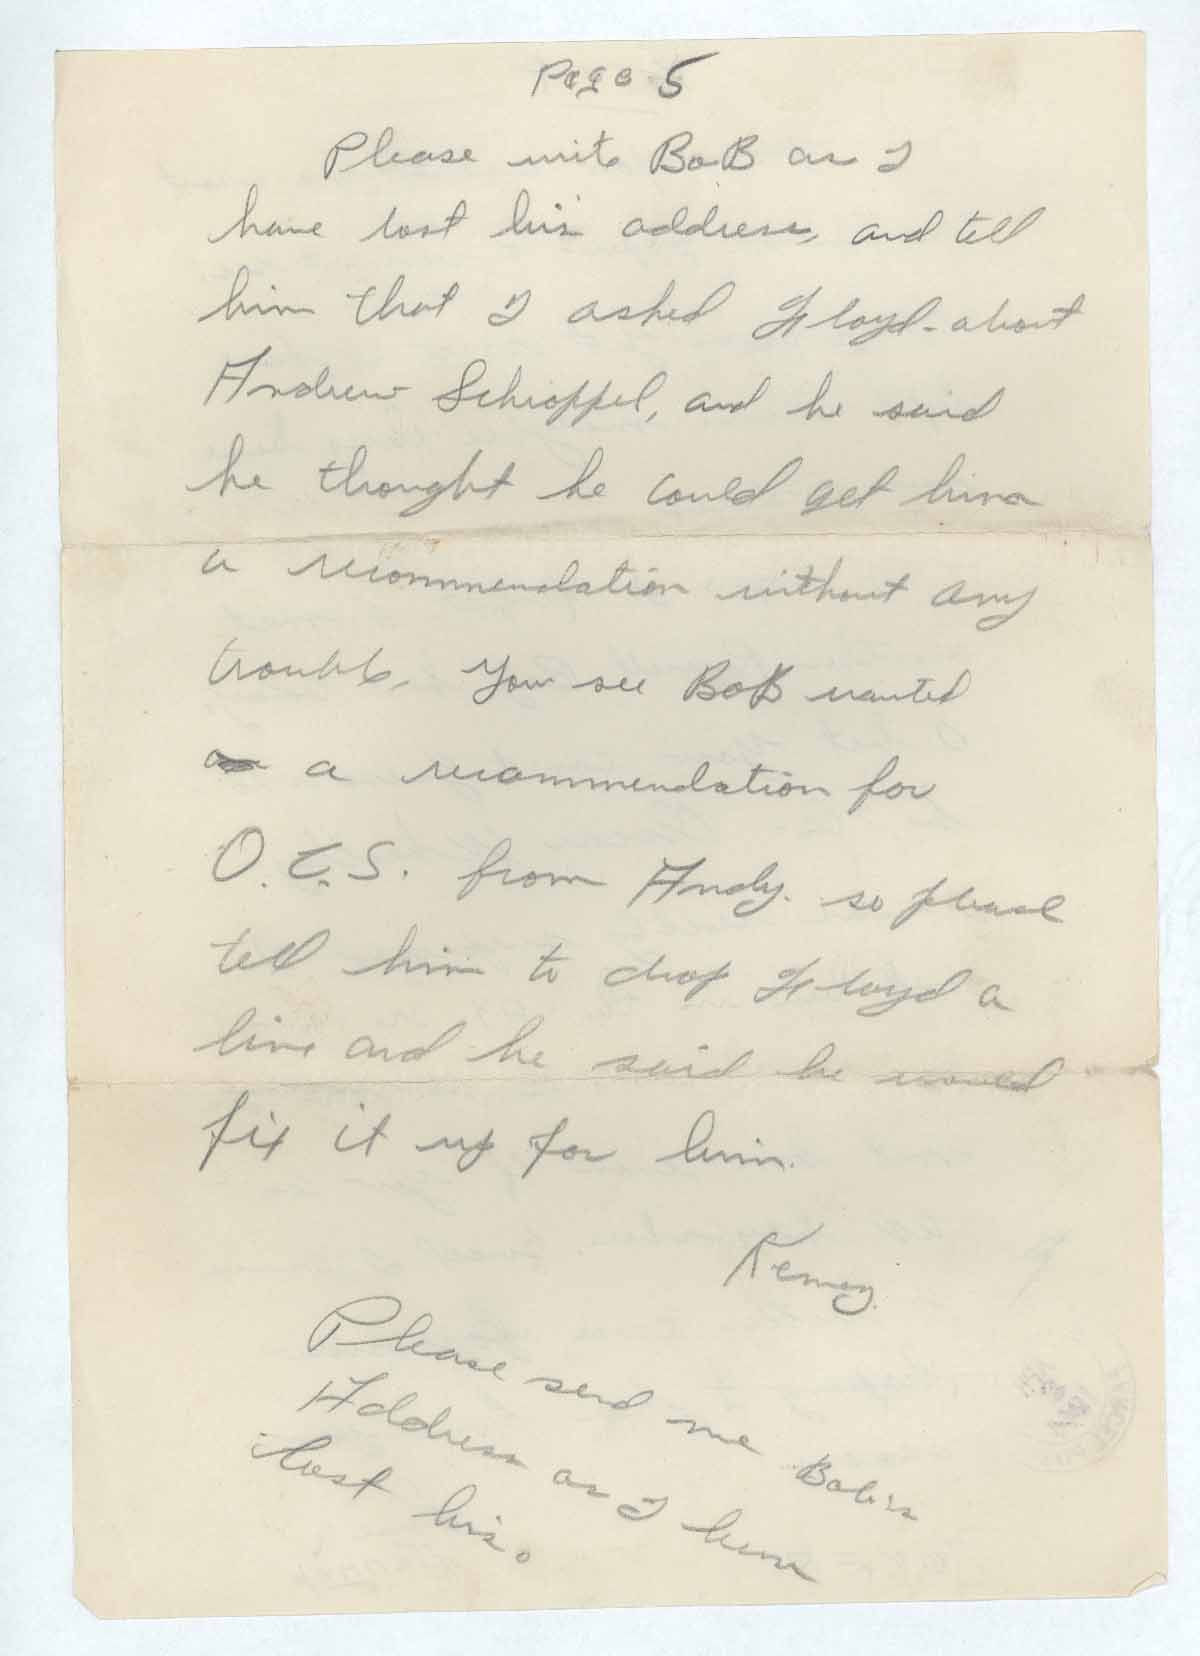 Page 5
Please write BoB as I
have lost his address, and tell
him that I asked Floyd about
Andrew Schioppel, and he said
he thought he could get him
a recommendation without any
trouble. You see BoB wanted
a recommendation for
O.C.S. from Andy. so please
tell him to drop Floyd a
line and he said he would
fix it up for him.
Please send me Bob's
Address as I have
lost his.